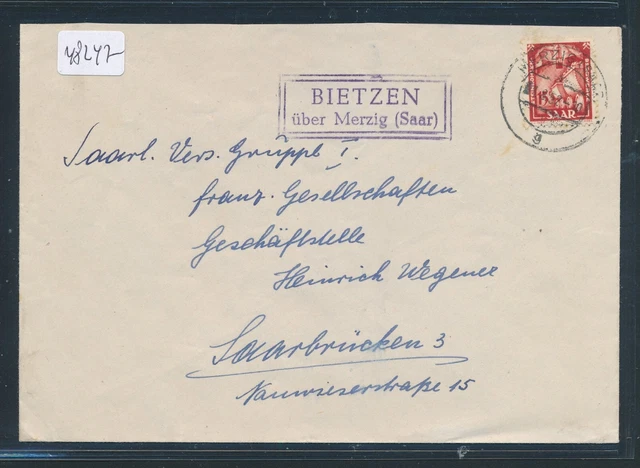 48247
BIETZEN
über Merzig (Saar)
SAAR
Saarl. Vers. Gruppe I.
franz. Gesellschaften
Geschäftstelle
Heinrich Wegener
Saarbrücken 3
Nauwieserstraße 15
g